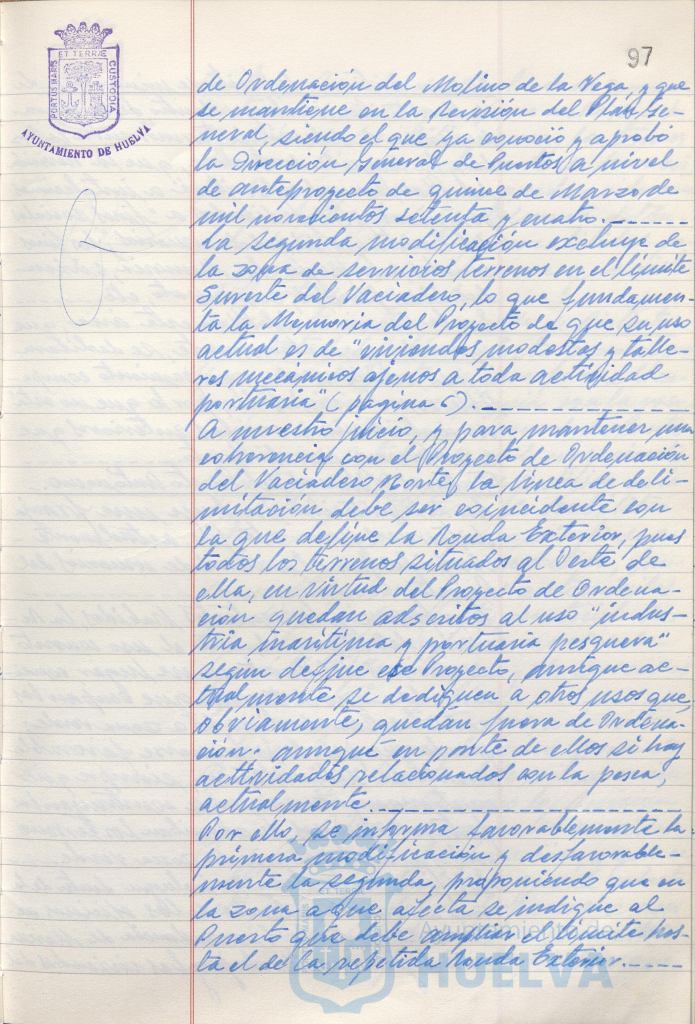 97
PORTUS MARIS ET TERRÆ CUSTODIA
AYUNTAMIENTO DE HUELVA
de Ordenación del Molino de la Vega, y que
se mantiene en la Revisión del Plan Ge-
neral, siendo el que ya conoció y aprobó
la Dirección General de Puertos a nivel
de anteproyecto de quince de Marzo de
mil novecientos setenta y cuatro.
La segunda modificación excluye de
la zona de servicios terrenos en el límite
Suroeste del Vaciadero, lo que fundamen-
ta la Memoria del Proyecto de que su uso
actual es de "viviendas modestas y talle-
res mecánicos ajenos a toda actividad
portuaria" (página 6).
A nuestro juicio, y para mantener una
coherencia con el Proyecto de Ordenación
del Vaciadero Norte, la línea de deli-
mitación debe ser coincidente con
la que define la Ronda Exterior, pues
todos los terrenos situados al Oeste de
ella, en virtud del Proyecto de Ordena-
ción quedan adscritos al uso "indus-
tria marítima y portuaria pesquera"
según define ese Proyecto, aunque ac-
tualmente se dediquen a otros usos que,
obviamente, quedan fuera de Ordena-
ción. aunque en parte de ellos si hay
actividades relacionados con la pesca,
actualmente.
Por ello, se informa favorablemente la
primera modificación y desfavorable-
mente la segunda, proponiendo que en
la zona a que afecta se indique al
Puerto que debe ampliar el límite has-
ta el de la repetida Ronda Exterior.
Ayuntamiento de
HUELVA